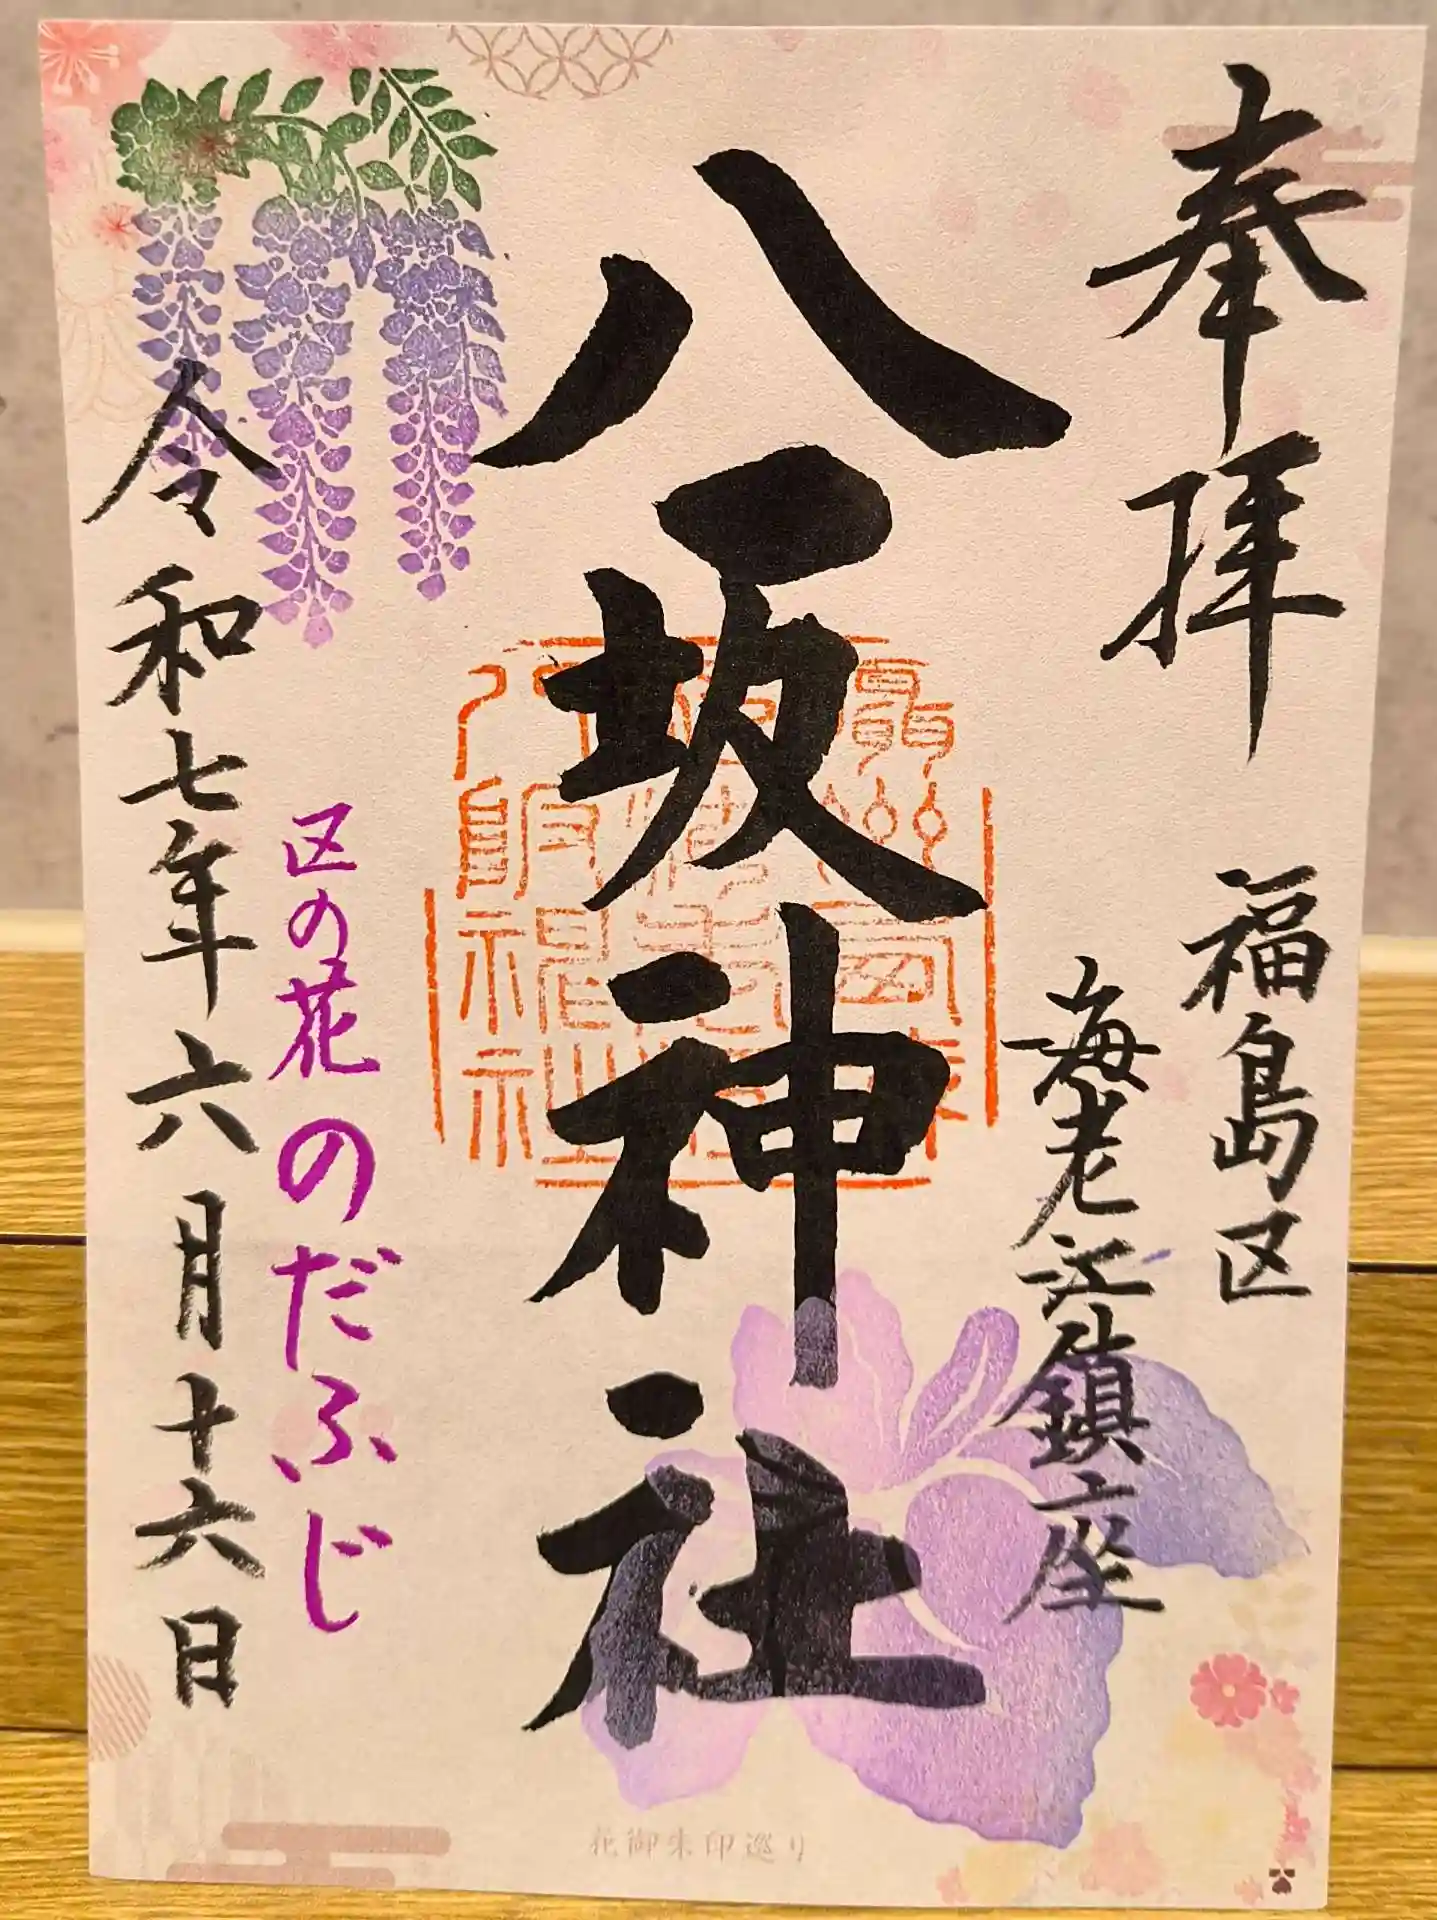 奉拝
福島区
海老江鎮座
八坂神社
区の花 のだふじ
令和七年六月十六日
花御朱印巡り